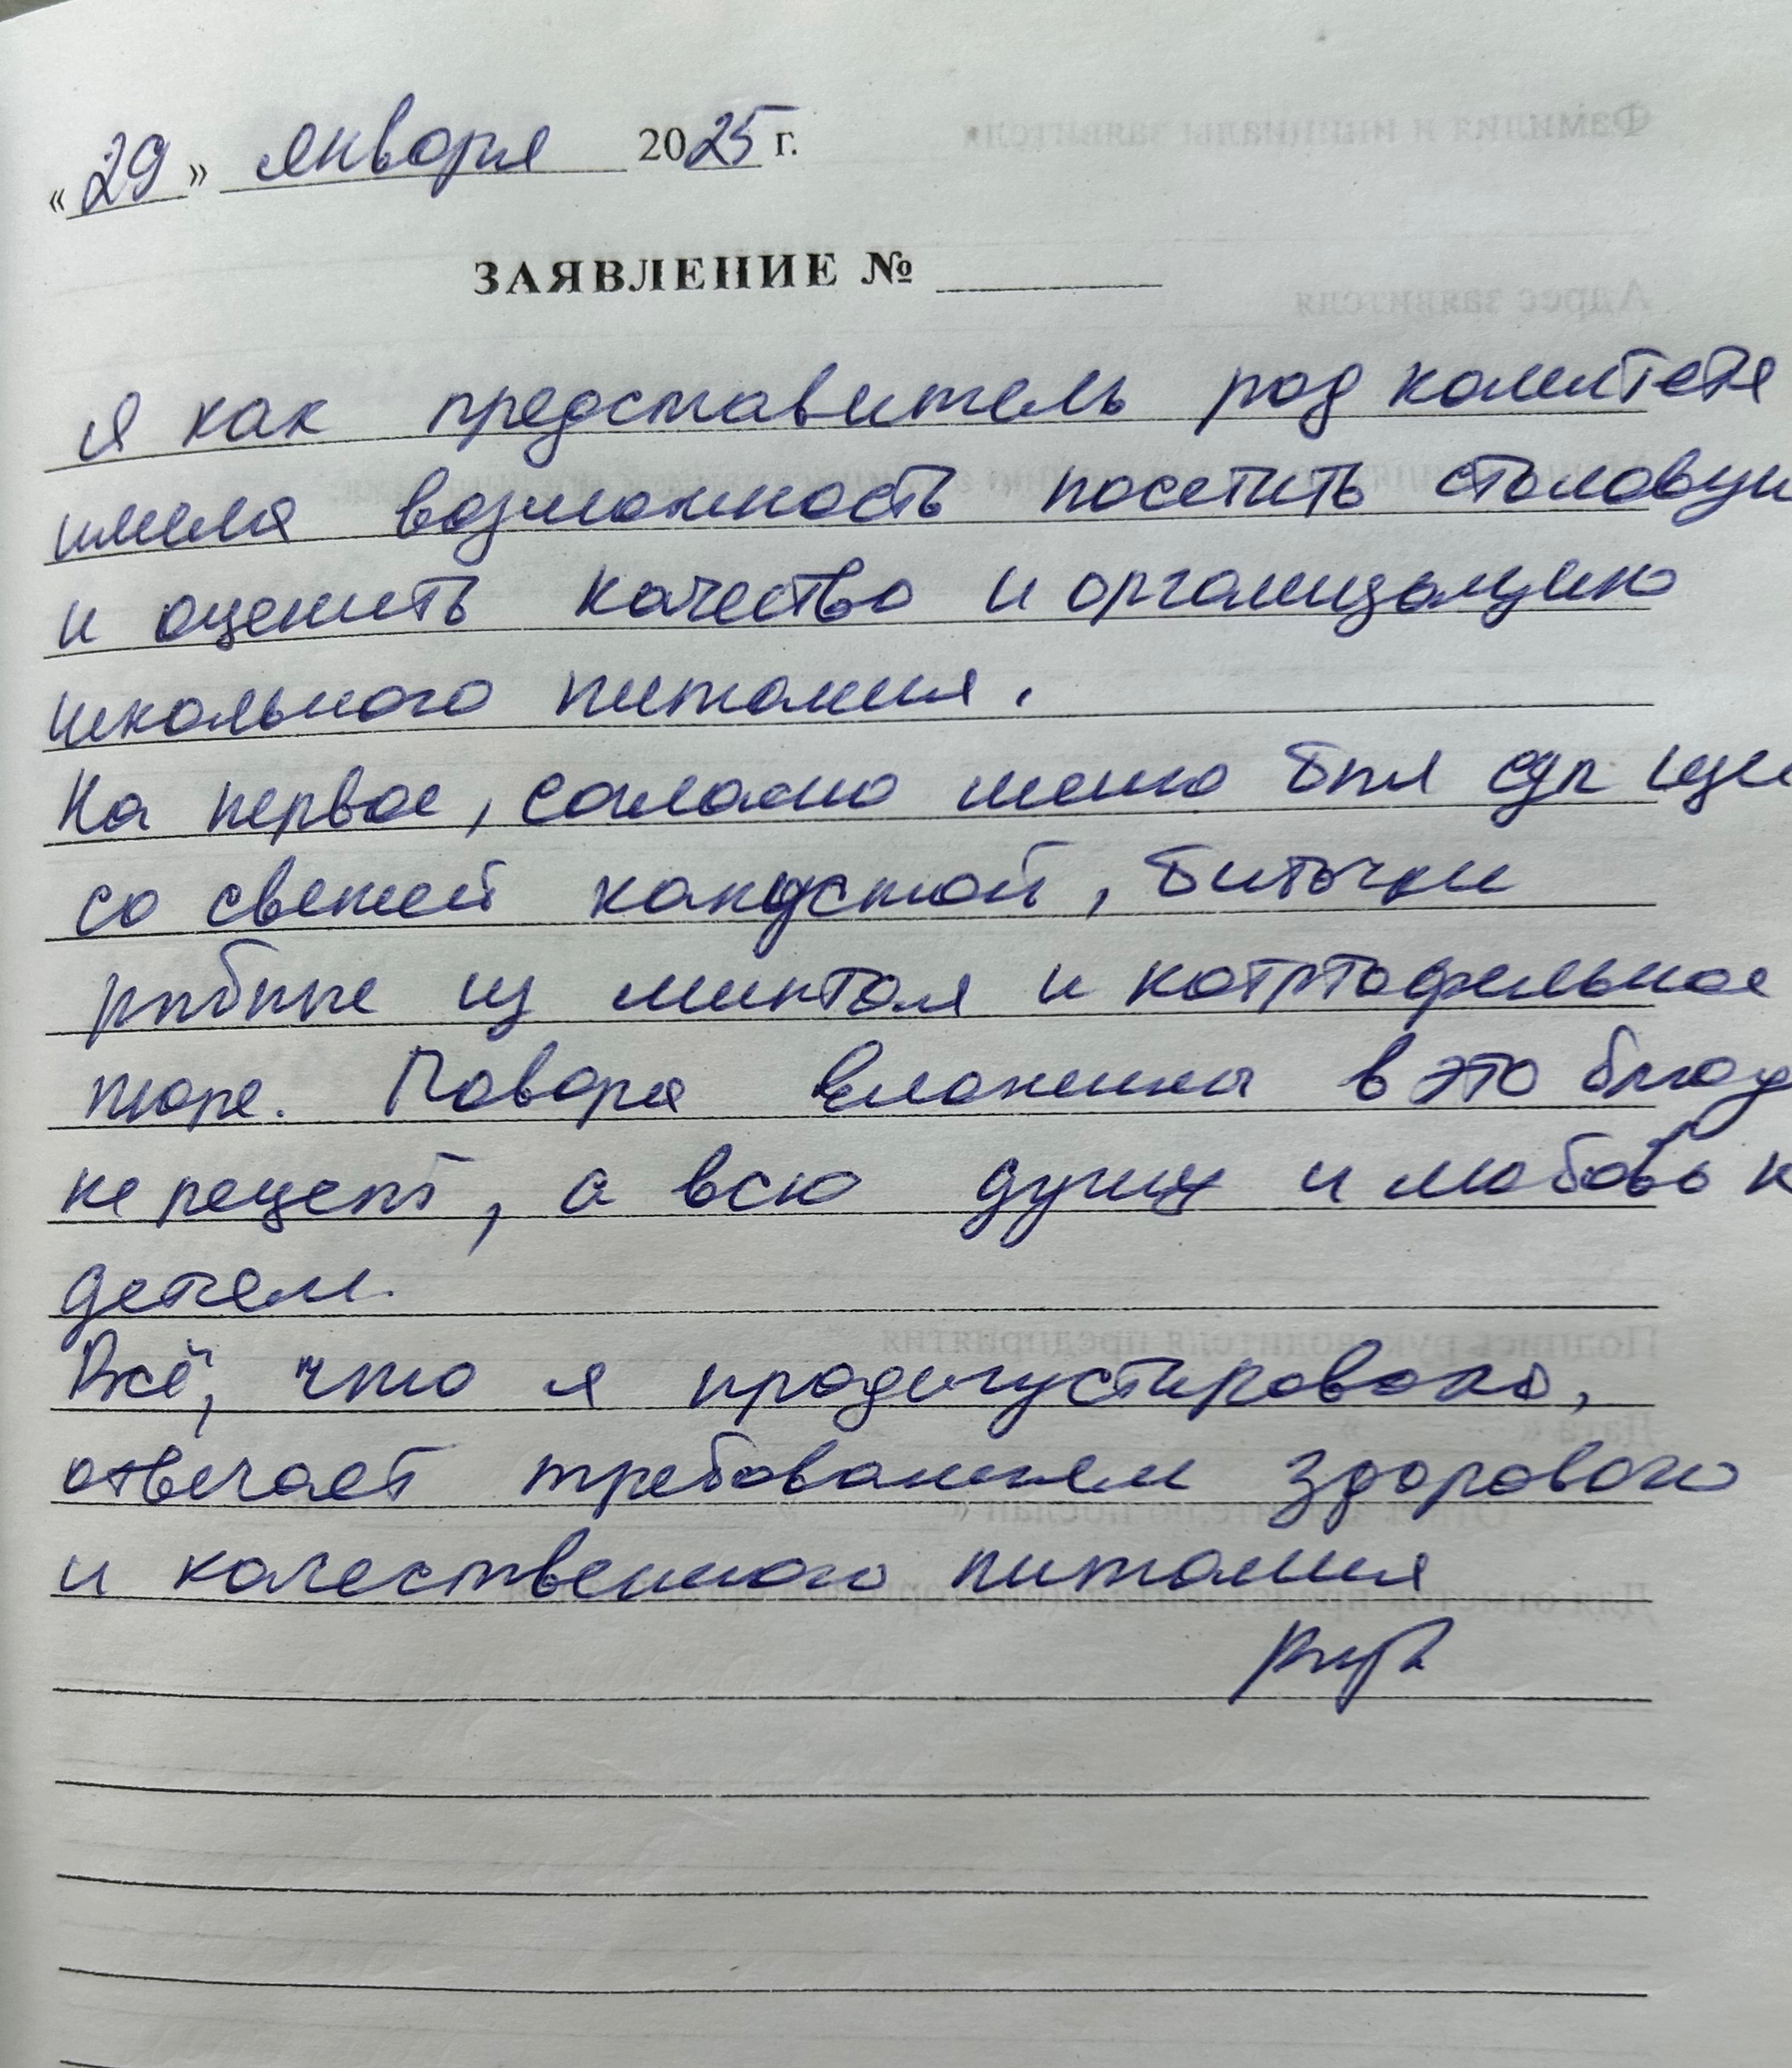 «29» января 2025 г.
ЗАЯВЛЕНИЕ №
Я как представитель род комитета
имела возможность посетить столовую
и оценить качество и организацию
школьного питания.
На первое, согласно меню был суп щи
со свежей капустой, биточки
рыбные из минтая и катртофельное
пюре. Повара вложили в это блюдо
не рецепт, а всю душу и любовь к
детям.
Всё, что я продегустировала,
отвечает требованием здорового
и качественного питания